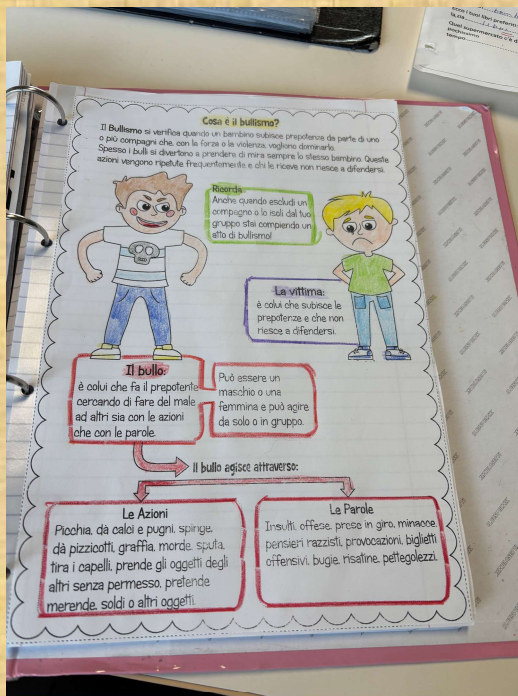 Cosa è il bullismo?
Il Bullismo si verifica quando un bambino subisce prepotenze da parte di uno
o più compagni che, con la forza o la violenza, vogliono dominarlo.
Spesso i bulli si divertono a prendere di mira sempre lo stesso bambino. Queste
azioni vengono ripetute frequentemente e chi le riceve non riesce a difendersi.
Ricorda:
Anche quando escludi un
compagno o lo isoli dal tuo
gruppo stai compiendo un
atto di bullismo!
La vittima:
è colui che subisce le
prepotenze e che non
riesce a difendersi.
Il bullo:
è colui che fa il prepotente
cercando di fare del male
ad altri sia con le azioni
che con le parole.
Può essere un
maschio o una
femmina e può agire
da solo o in gruppo.
Il bullo agisce attraverso:
Le Azioni
Picchia, dà calci e pugni, spinge,
dà pizzicotti, graffia, morde, sputa,
tira i capelli, prende gli oggetti degli
altri senza permesso, pretende
merende, soldi o altri oggetti.
Le Parole
Insulti, offese, prese in giro, minacce,
pensieri razzisti, provocazioni, biglietti
offensivi, bugie, risatine, pettegolezzi.
i tuoi libri preferiti
Quel supermercato c'è d
pochissimo
tempo